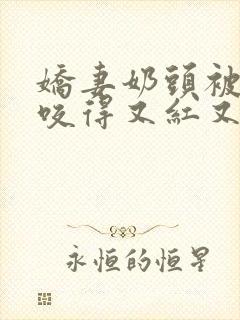 嬌妻奶頭被
咬得又紅又
永恒的恒星